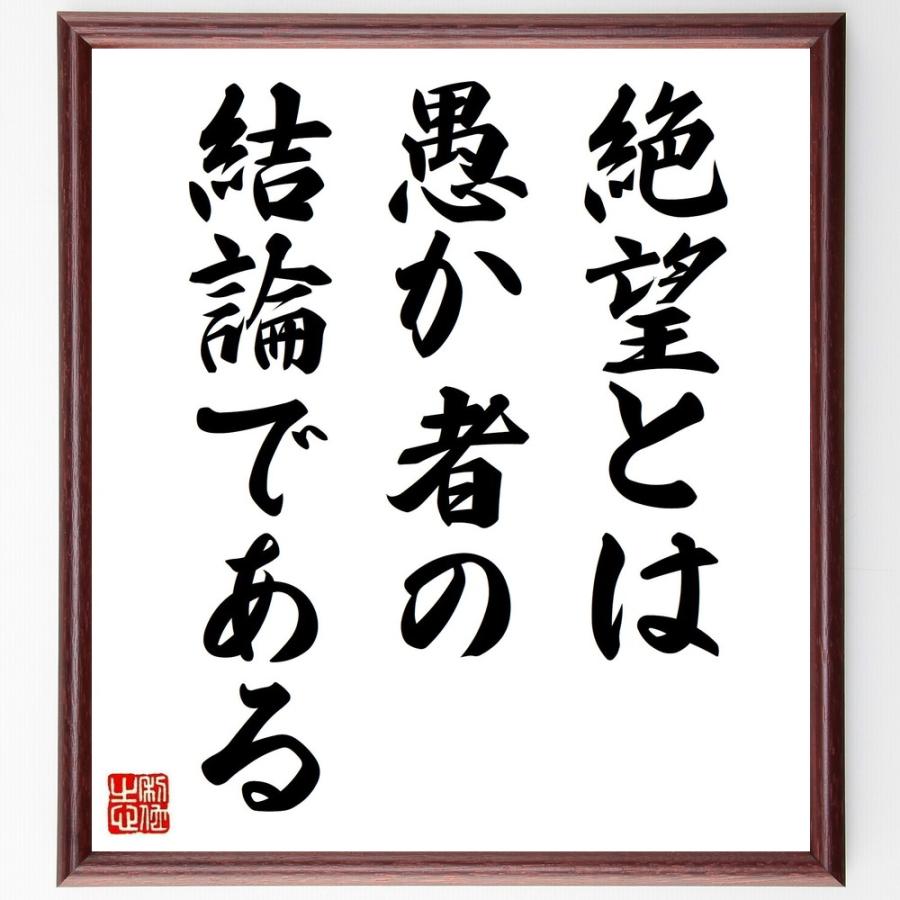 絶望とは
愚か者の
結論である